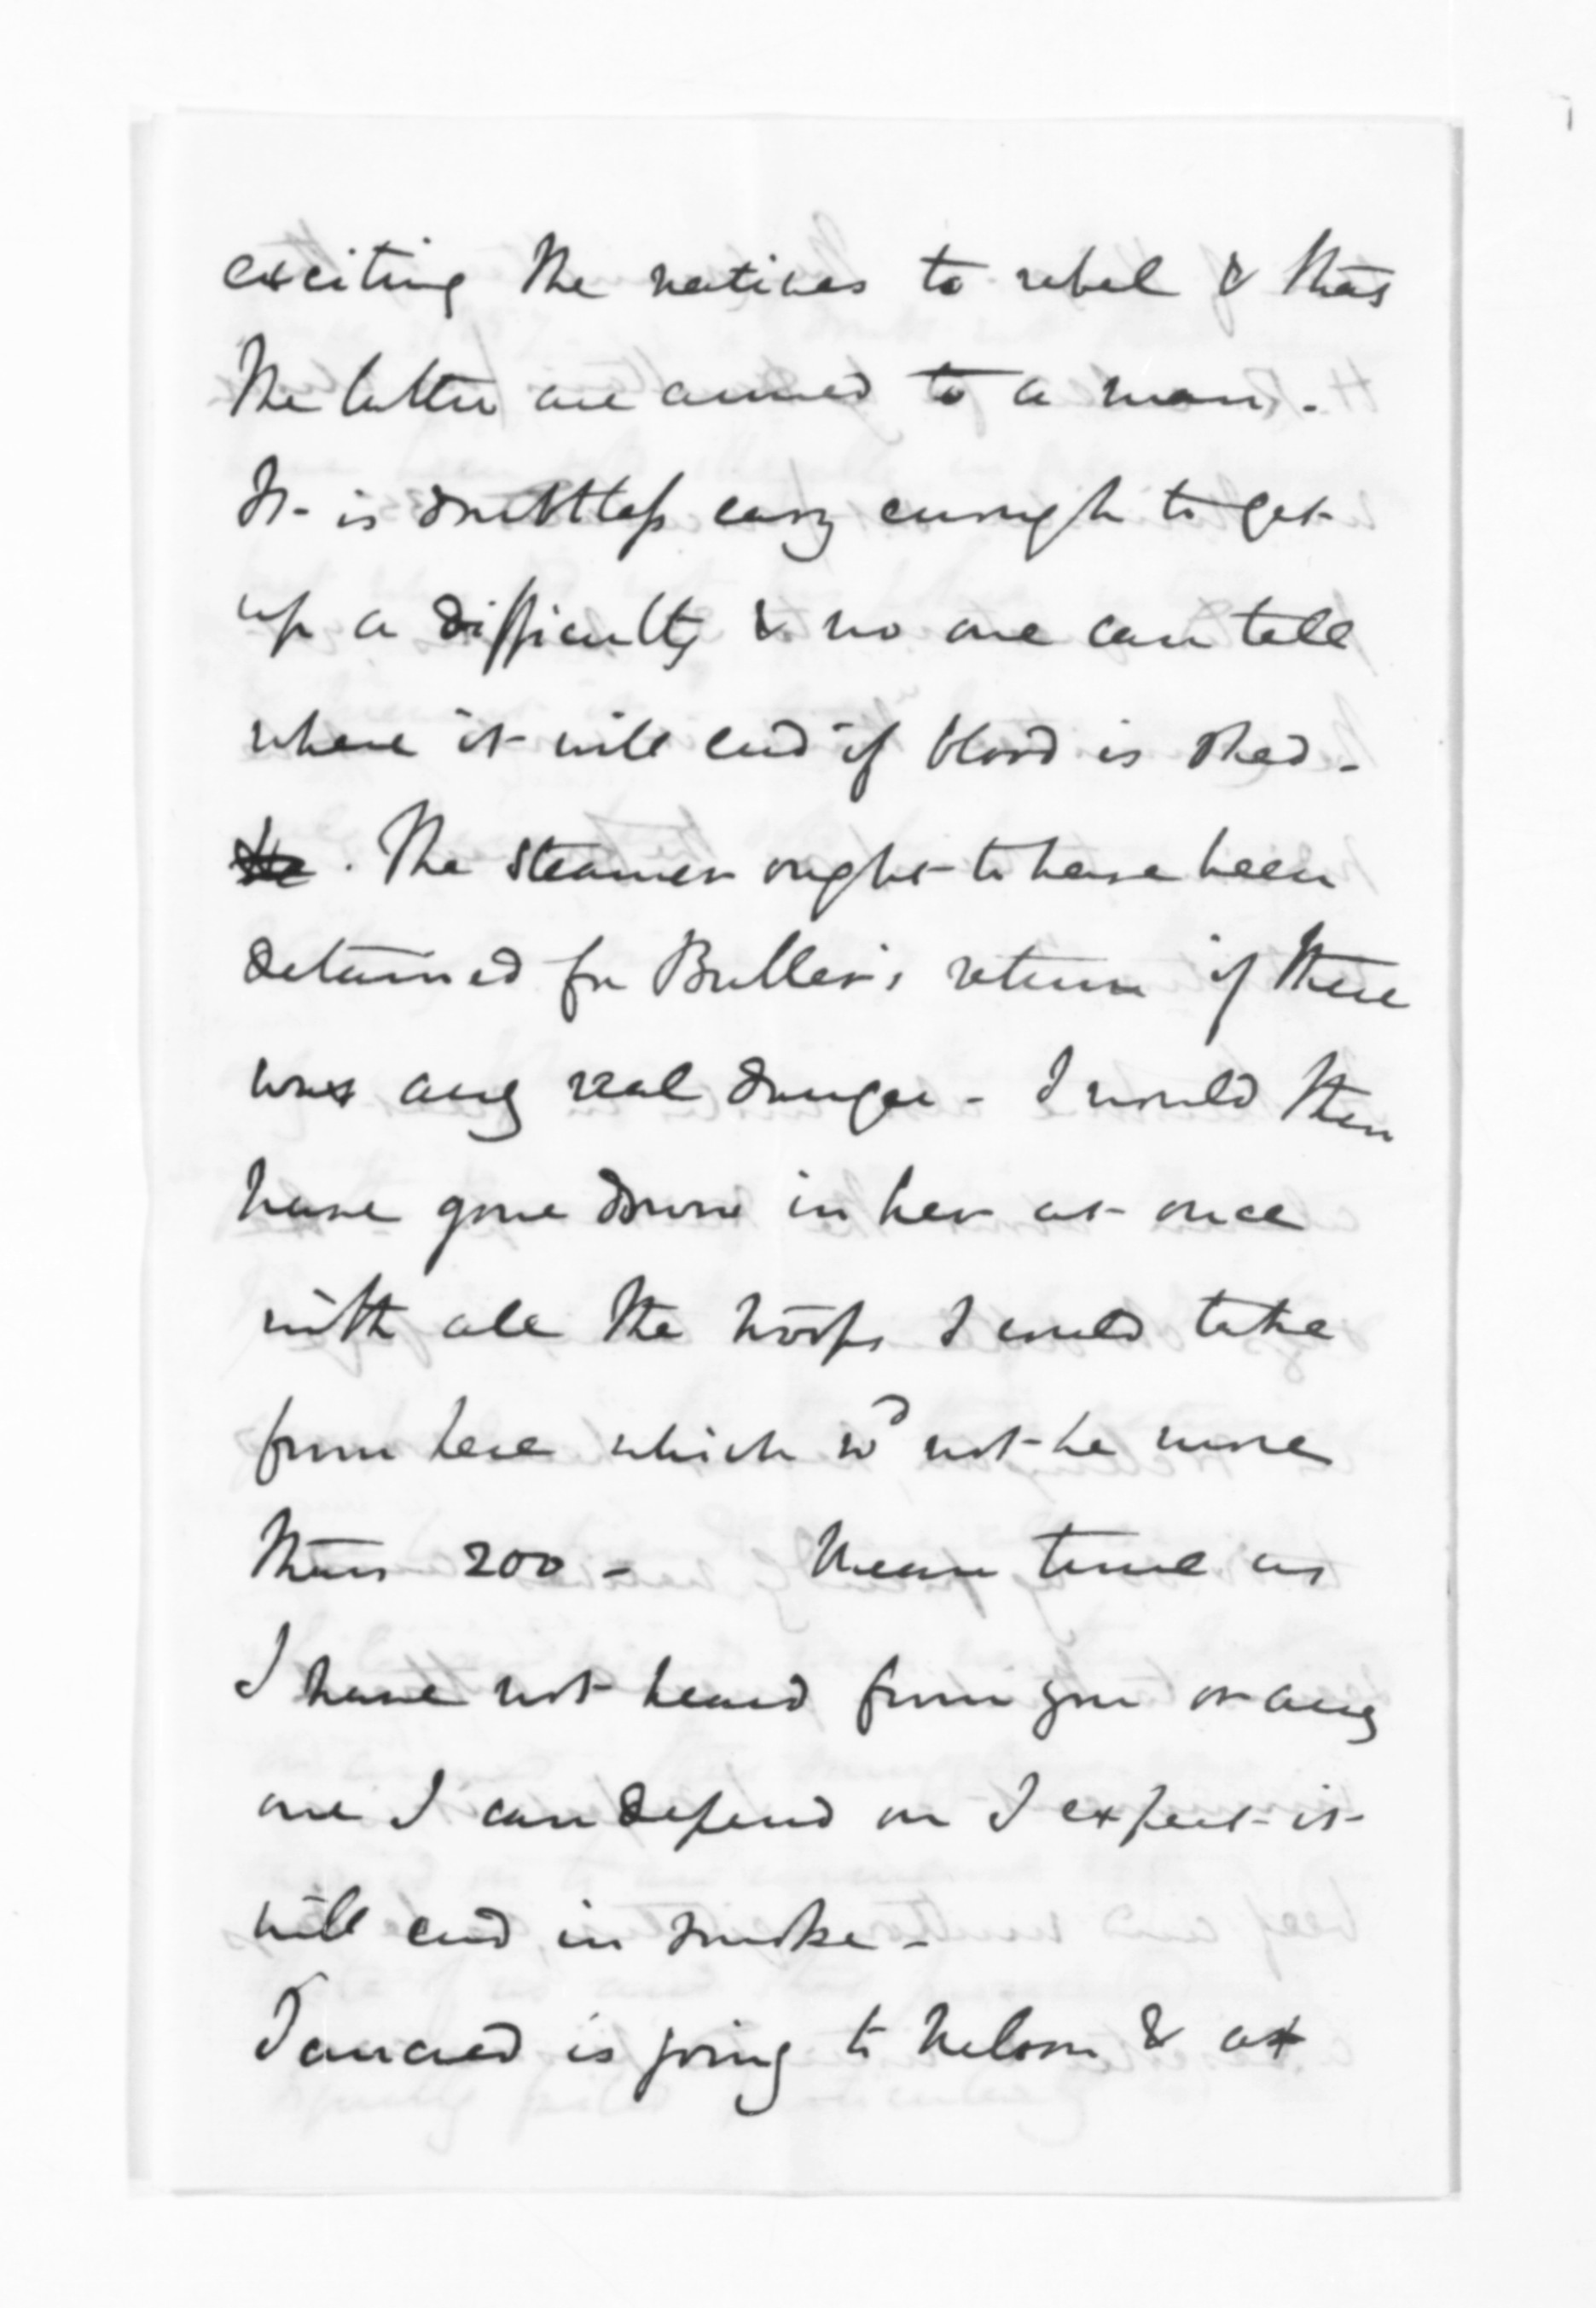 exciting the natives to rebel & that
the latter are armed to a man.
It is doubtless easy enough to get
up a difficulty & no one can tell
where it will end if blood is shed -
. The steamer ought to have been
detained for Buller's return if there
was any real danger - I would then
have gone down in her at once
with all the troops I could take
from here which wd not be more
than 200 - Mean time as
I have not heard from you or any
one I can depend on I expect it
will end in smoke -
Tancred is going to Nelson & at